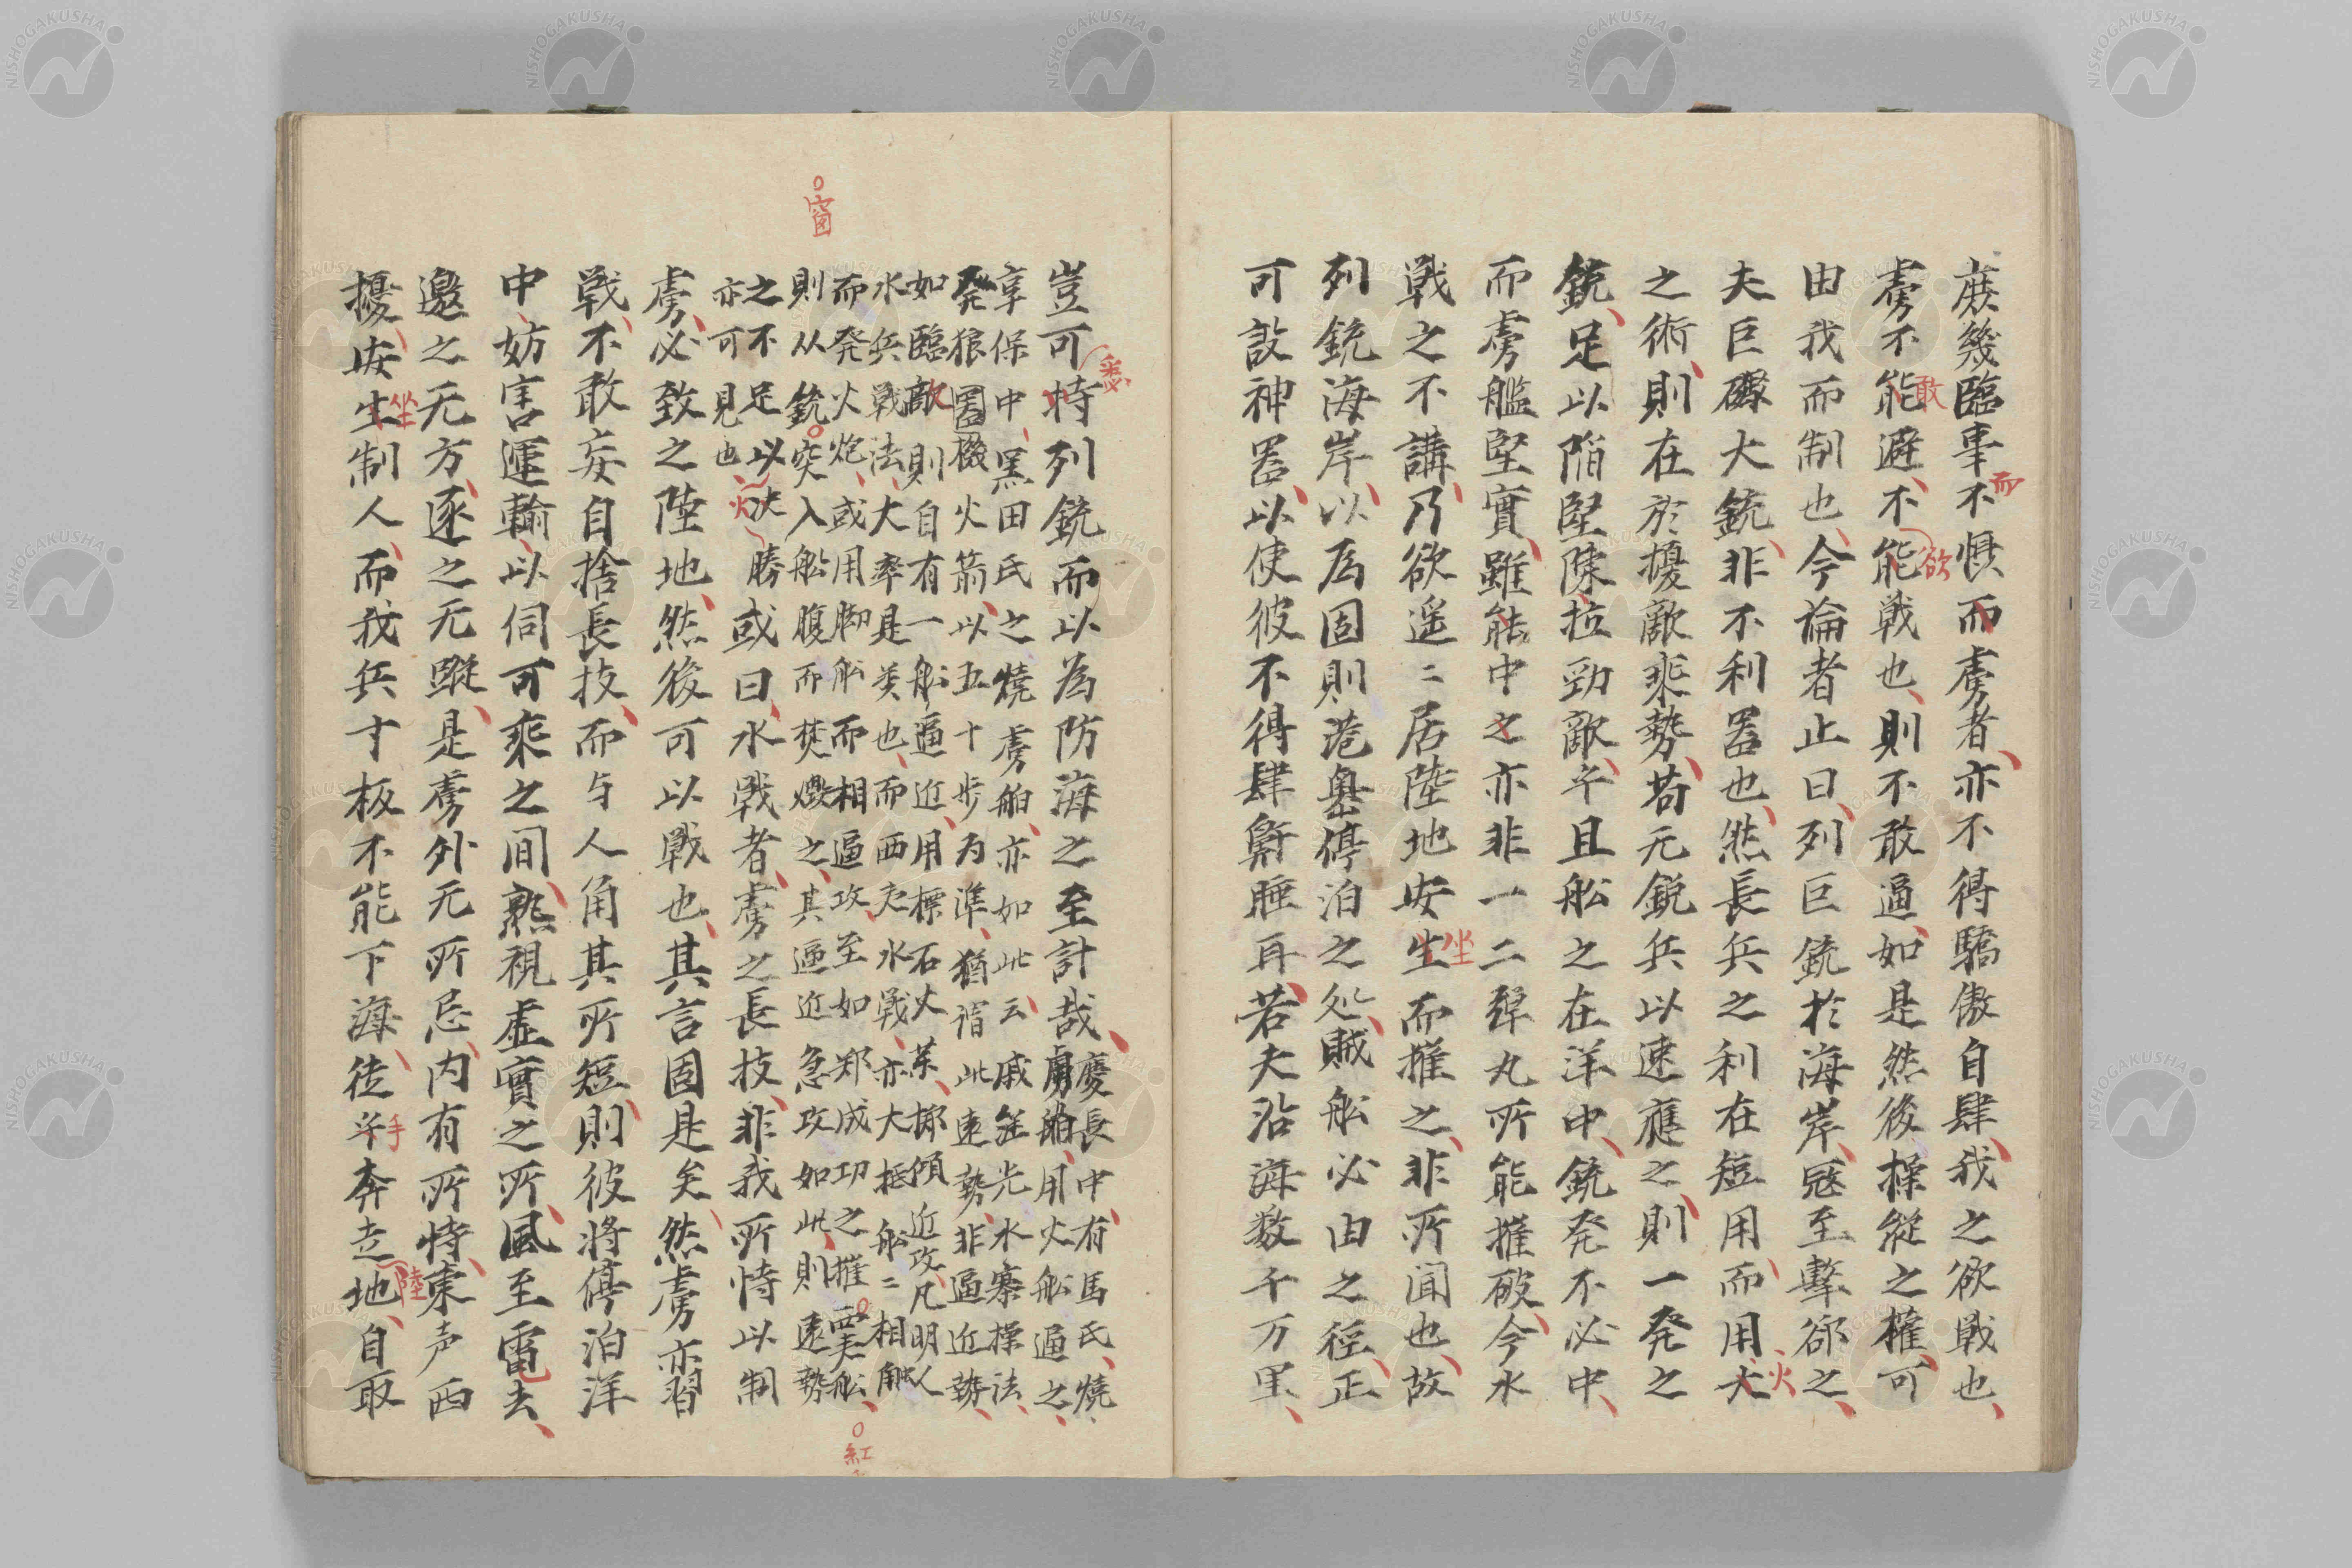 庶幾臨事不惧而虜者亦不得驕傲自肆我之欲戦也
虜不能避不能戦也則不敢逼如是然後操縦之権可
由我而制也今論者止曰列巨銃於海岸冦至撃郤之
夫巨礮大銃非不利噐也然長兵之利在短用而用大
之術則在於擾敵乗勢若无鋭兵以速應之則一発之
銃足以陥堅陳拉勁敵乎且舩之在洋中銃発不必中
而虜艦堅實雖能中之亦非一二弾丸所能摧破今水
戦之不講乃欲遥〻居陸地安生而摧之非所聞也故
列銃海岸以為固則港嶴停泊之処賊舩必由之徑正
可設神噐以使彼不得肆鼾睡耳若夫沿海数千万里
而
敢
欲
火
坐
豈可恃列銃而以為防海之至計哉慶長中有馬氏焼
虜舶用火舩逼之
享保中黒田氏之焼虜舶亦如此云戚継光水寨操法
発狼噐機火箭以五十歩为準猶谓此遠勢非逼近勢
如臨敵則自有一舩逼近用標石火薬擲傾近攻凡明人
水兵戦法大率是类也而西夷水戦亦大抵舩〻相触
而発火炮或用脚舩而相逼攻至如郑成功之摧䙲夫舩
則从銃突入舩腹而焚燬之其逼近急攻如此則遠勢
之不足以决勝或曰水戦者虜之長技非我所恃以制
亦可見也
虜必致之陸地然後可以戦也其言固是矣然虜亦習
戦不敢妄自捨長技而与人角其所短則彼将停泊洋
中妨害運輸以伺可乗之间熟視虚實之所風至電去
邀之无方逐之无蹤是虜外无所忌内有所恃東声西
擾安生制人而我兵寸板不能下海徒乎奔走地自取
悉
窗
火
紅
坐
手
陸
NISHOGAKUSHA